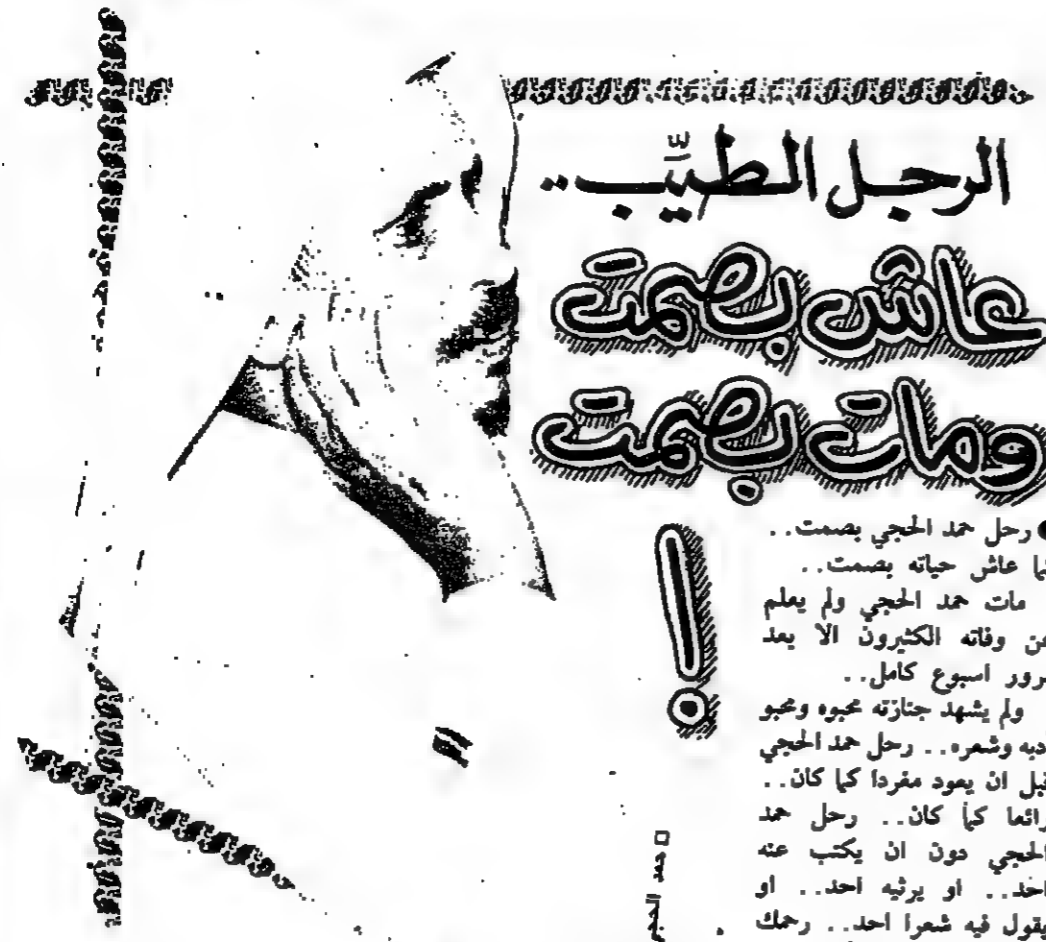 الرجل الطيِّب..
عاش بصمت
ومات بصمت
!
● رحل حمد الحجي بصمت..
كما عاش حياته بصمت..
مات حمد الحجي ولم يعلم
عن وفاته الكثيرون الا بعد
مرور اسبوع كامل..
ولم يشهد جنازته محبوه ومحبو
أدبه وشعره.. رحل حمد الحجي
قبل ان يعود مغردا كما كان..
رائعا كما كان.. رحل حمد
الحجي دون ان يكتب عنه
احد.. او يرثيه احد.. او
يقول فيه شعرا احد.. رحمك
□ حمد الحجي